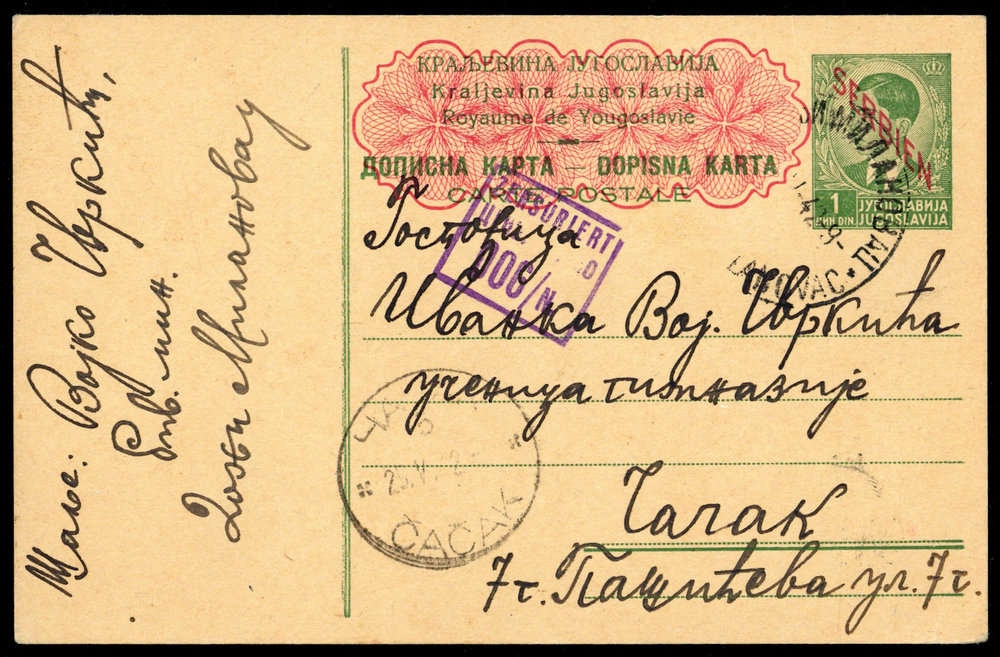 КРАЉЕВИНА ЈУГОСЛАВИЈА
Kraljevina Jugoslavija
Royaume de Yougoslavie
ДОПИСНА КАРТА — DOPISNA KARTA
CARTE POSTALE
SERBIEN
1
ДИН DIN
ЈУГОСЛАВИЈА
JUGOSLAVIJA
МИЛАНОВАЦ
Госпођица
Иванка Вој. Чвркића
ученица гимназије
Чачак
7г. Пашићева ул. 7г.
Шаље: Војко Чвркић,
Горњи Милановац
ČAČAK